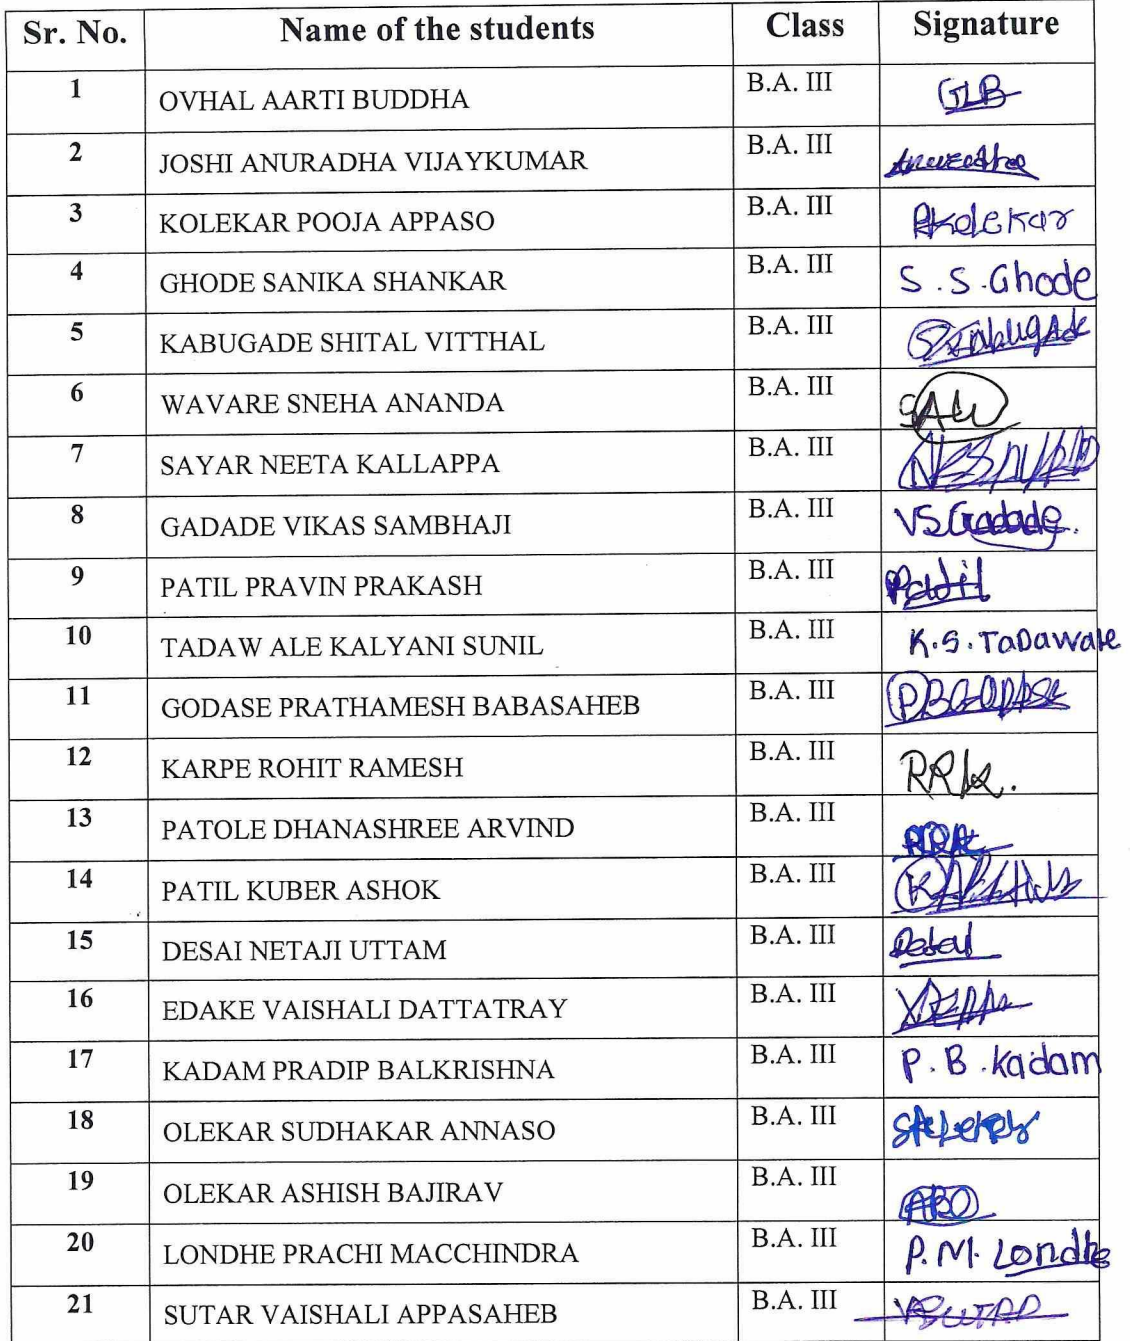 Sr. No. Name of the students Class Signature
1 OVHAL AARTI BUDDHA B.A. III GLB
2 JOSHI ANURADHA VIJAYKUMAR B.A. III
3 KOLEKAR POOJA APPASO B.A. III
4 GHODE SANIKA SHANKAR B.A. III S.S.Ghode
5 KABUGADE SHITAL VITTHAL B.A. III
6 WAVARE SNEHA ANANDA B.A. III
7 SAYAR NEETA KALLAPPA B.A. III
8 GADADE VIKAS SAMBHAJI B.A. III VSGadade.
9 PATIL PRAVIN PRAKASH B.A. III Patil
10 TADAW ALE KALYANI SUNIL B.A. III K.S.TaDawale
11 GODASE PRATHAMESH BABASAHEB B.A. III
12 KARPE ROHIT RAMESH B.A. III RRk.
13 PATOLE DHANASHREE ARVIND B.A. III
14 PATIL KUBER ASHOK B.A. III
15 DESAI NETAJI UTTAM B.A. III Desai
16 EDAKE VAISHALI DATTATRAY B.A. III
17 KADAM PRADIP BALKRISHNA B.A. III P.B.Kadam
18 OLEKAR SUDHAKAR ANNASO B.A. III
19 OLEKAR ASHISH BAJIRAV B.A. III ABO
20 LONDHE PRACHI MACCHINDRA B.A. III P.M.Londhe
21 SUTAR VAISHALI APPASAHEB B.A. III